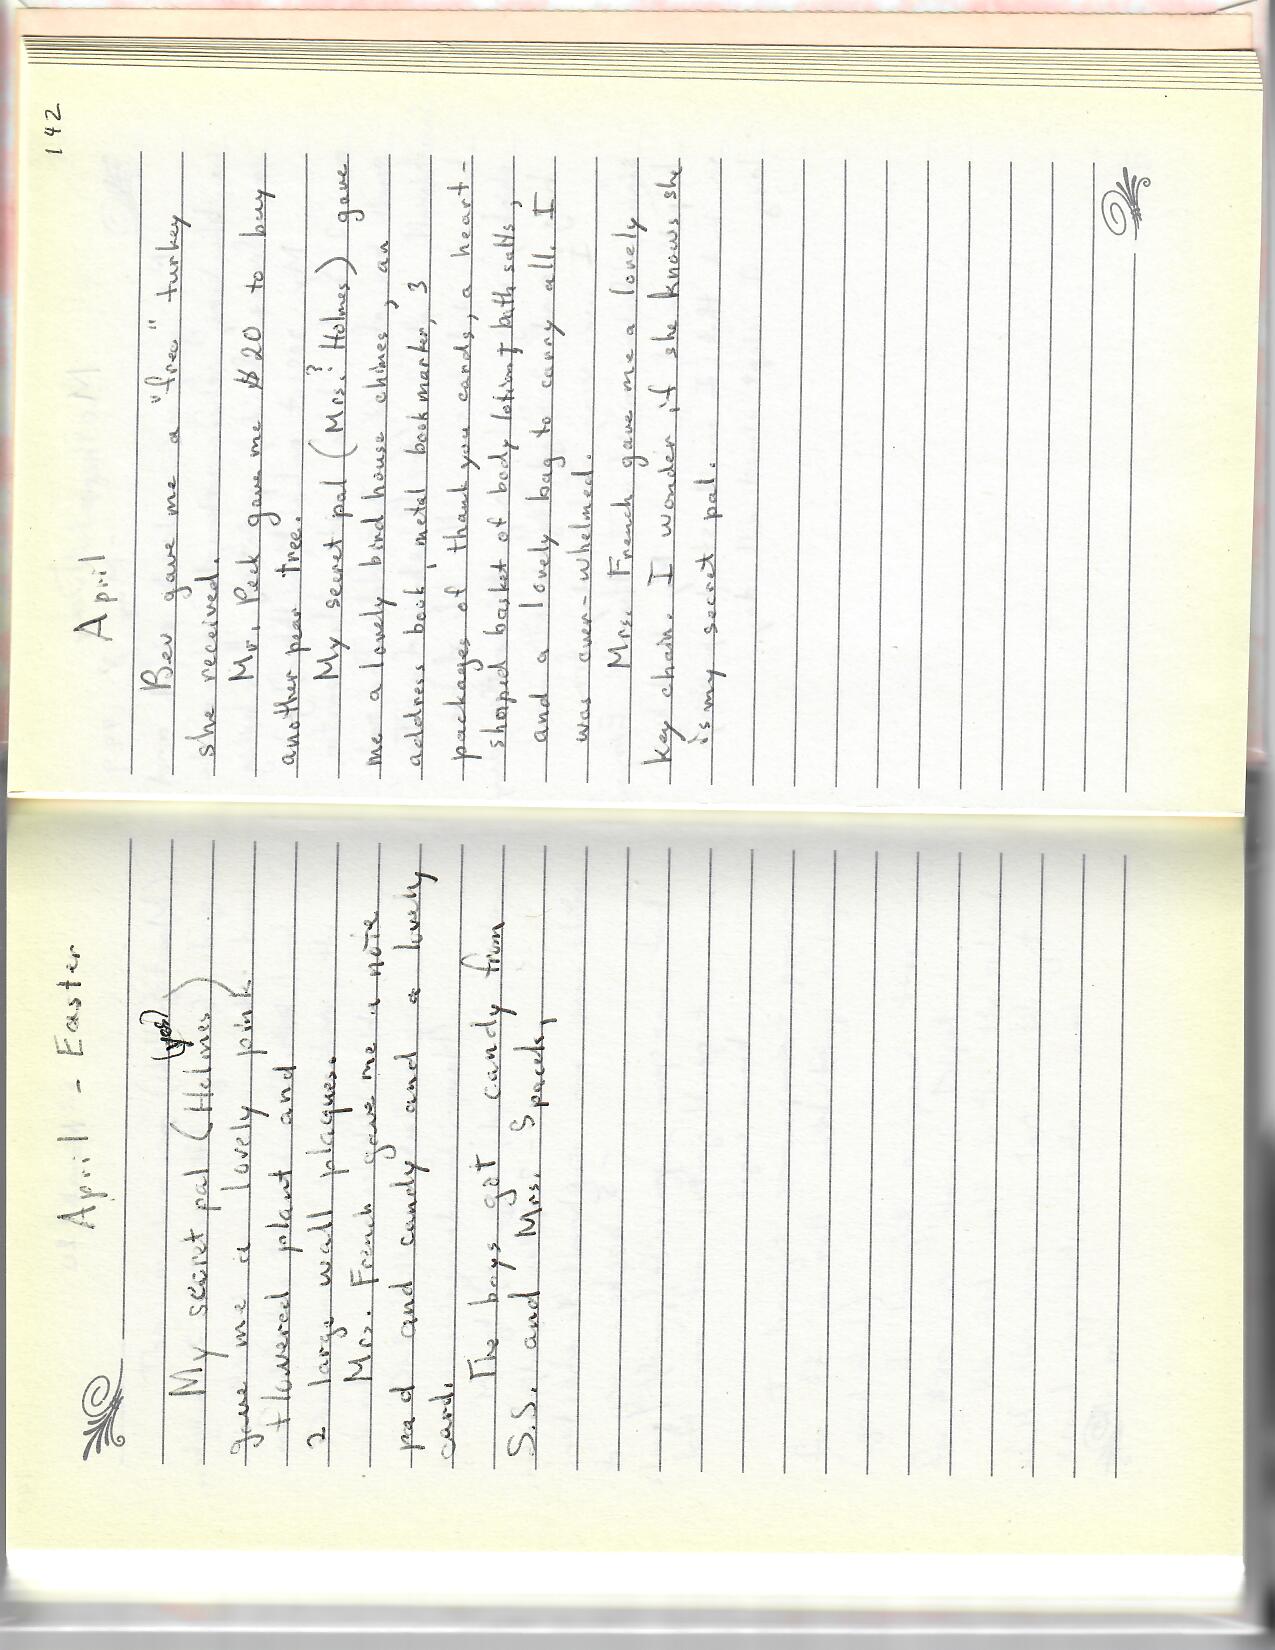 April - Easter
(yes)
My secret pal (Holmes)
gave me a lovely pink
flowered plant and
2 large wall plaques.
Mrs. French gave me a note
pad and candy and a lovely
card.
The boys got candy from
S.S. and Mrs. Spacek,
142
April
Bev gave me a "free" turkey
she received.
Mr. Peck gave me $20 to buy
another pear tree.
My secret pal (Mrs? Holmes) gave
me a lovely bird house chimes, an
address book, metal bookmarker, 3
packages of thank you cards, a heart-
shaped basket of body lotion & bath salts,
and a lovely bag to carry all. I
was over-whelmed.
Mrs. French gave me a lovely
key chain. I wonder if she knows she
is my secret pal.